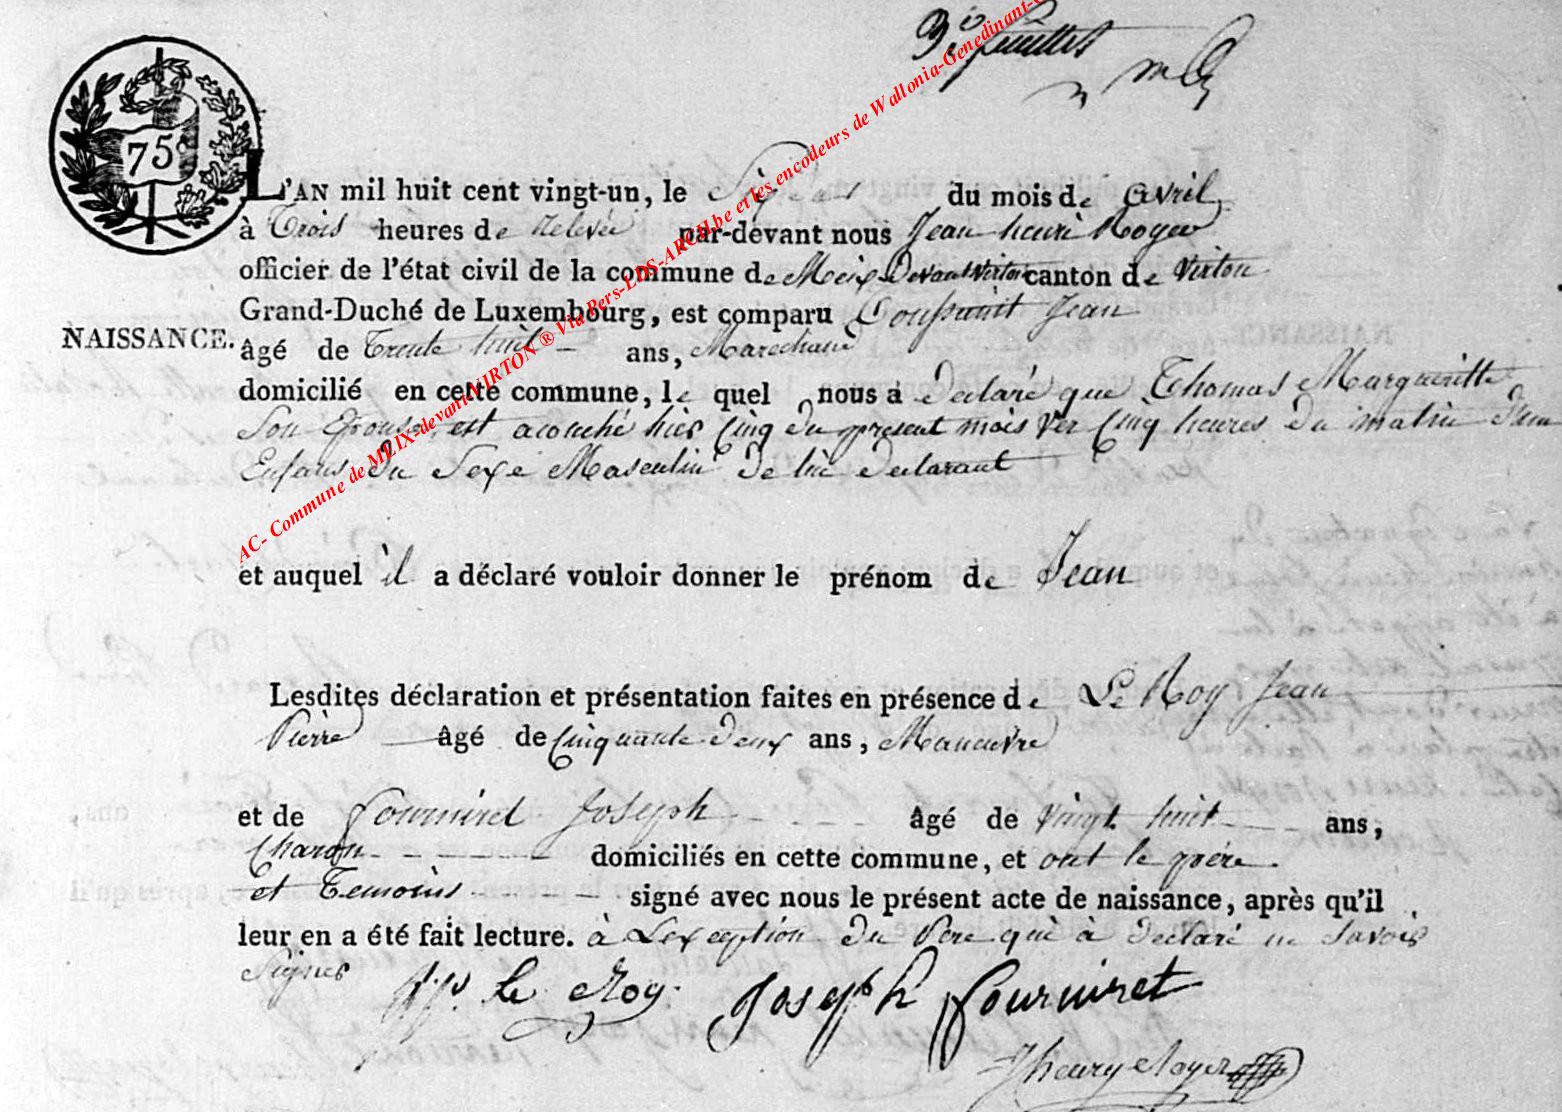 3e feuillet
75
L'AN mil huit cent vingt-un, le Six du mois de avril
à Trois heures de relevée par-devant nous Jean henri Royer
officier de l'état civil de la commune de Meix Devant Virton canton de Virton
Grand-Duché de Luxembourg, est comparu Toussaint Jean
NAISSANCE.
âgé de Trente huit ans, Marechand
domicilié en cette commune, le quel nous a declaré que Thomas Margueritte
Son Epouse est acouché hier Cinq du present mois ver Cinq heures du matin d'un
Enfans du Sexe Masculin de lui declarant
et auquel il a déclaré vouloir donner le prénom de Jean
Lesdites déclaration et présentation faites en présence de Le Roy Jean
Pierre âgé de Cinquante deux ans, Maneuvre
et de fourniret Joseph âgé de vingt huit ans,
Charon domiciliés en cette commune, et ont le père
et Temoins signé avec nous le présent acte de naissance, après qu'il
leur en a été fait lecture. à Lexception du Pere qui à declaré ne Savoir
Signer
le Roy Joseph fourniret
Jhenry Royer
AC- Commune de MEIX-devant-VIRTON ® Via Pers-LDS-ARCH.be et les encodeurs de Wallonia-Genedinant-